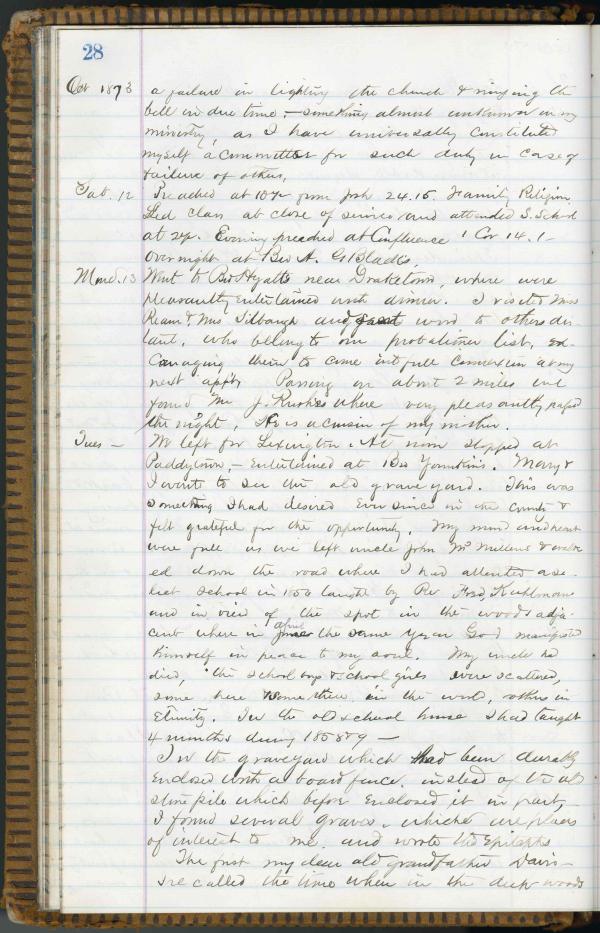 28
Oct 1873 a failure in lighting the church & ringing the
bell in due time, – something almost unknown in my
ministry, as I have universally constituted
myself a committee for such duty in case of
failure of others.
Sab. 12 Preached at 10½ from Josh 24.15. Family Religion.
Led class at close of service and attended S. School
at 2 Evening preached at Confluence 1 Cor 14.1–
over night at Bro A. G Black's.
Mond. 13 Went to Bro Hyatts near Draketown, where were
pleasantly entertained with dinner. I visited Miss
Ream & Mrs Silbaugh and sent word to others dis-
tant, who belong to our probationer list, en-
couraging them to come into full connexion at my
next appt, Passing on about 2 miles we
found Mr J. where very pleasantly passed
the night, He is a cousin of my mother.
Tues – We left for Lexington. At noon stopped at
Paddytown, – Entertained at Bro Younkin's. Mary &
I went to see the old grave yard. This was
something I had desired ever since in the county &
felt grateful for the opportunity. My mind and heart
were full as we left uncle John McMillens & walk-
ed down the road where I had attended a se-
lect school in 1856 taught by Rev Fred, Kuhlman
and in view of the spot in the woods adja-
cent where in april the same year God manifested
himself in peace to my soul. My uncle had
died, the school boys & school girls were scattered,
some here some there in the world, others in
Eternity. In the old school house I had taught
4 months during 1858 & 9 –
In the graveyard which had been durably
enclosed with a board fence, instead of the old
stone pile which before enclosed it in part,
I found several graves, which are places
of interest to me, and wrote the Epitaphs
The first my dear old grandfather Davis –
I recalled the time when in the deep woods